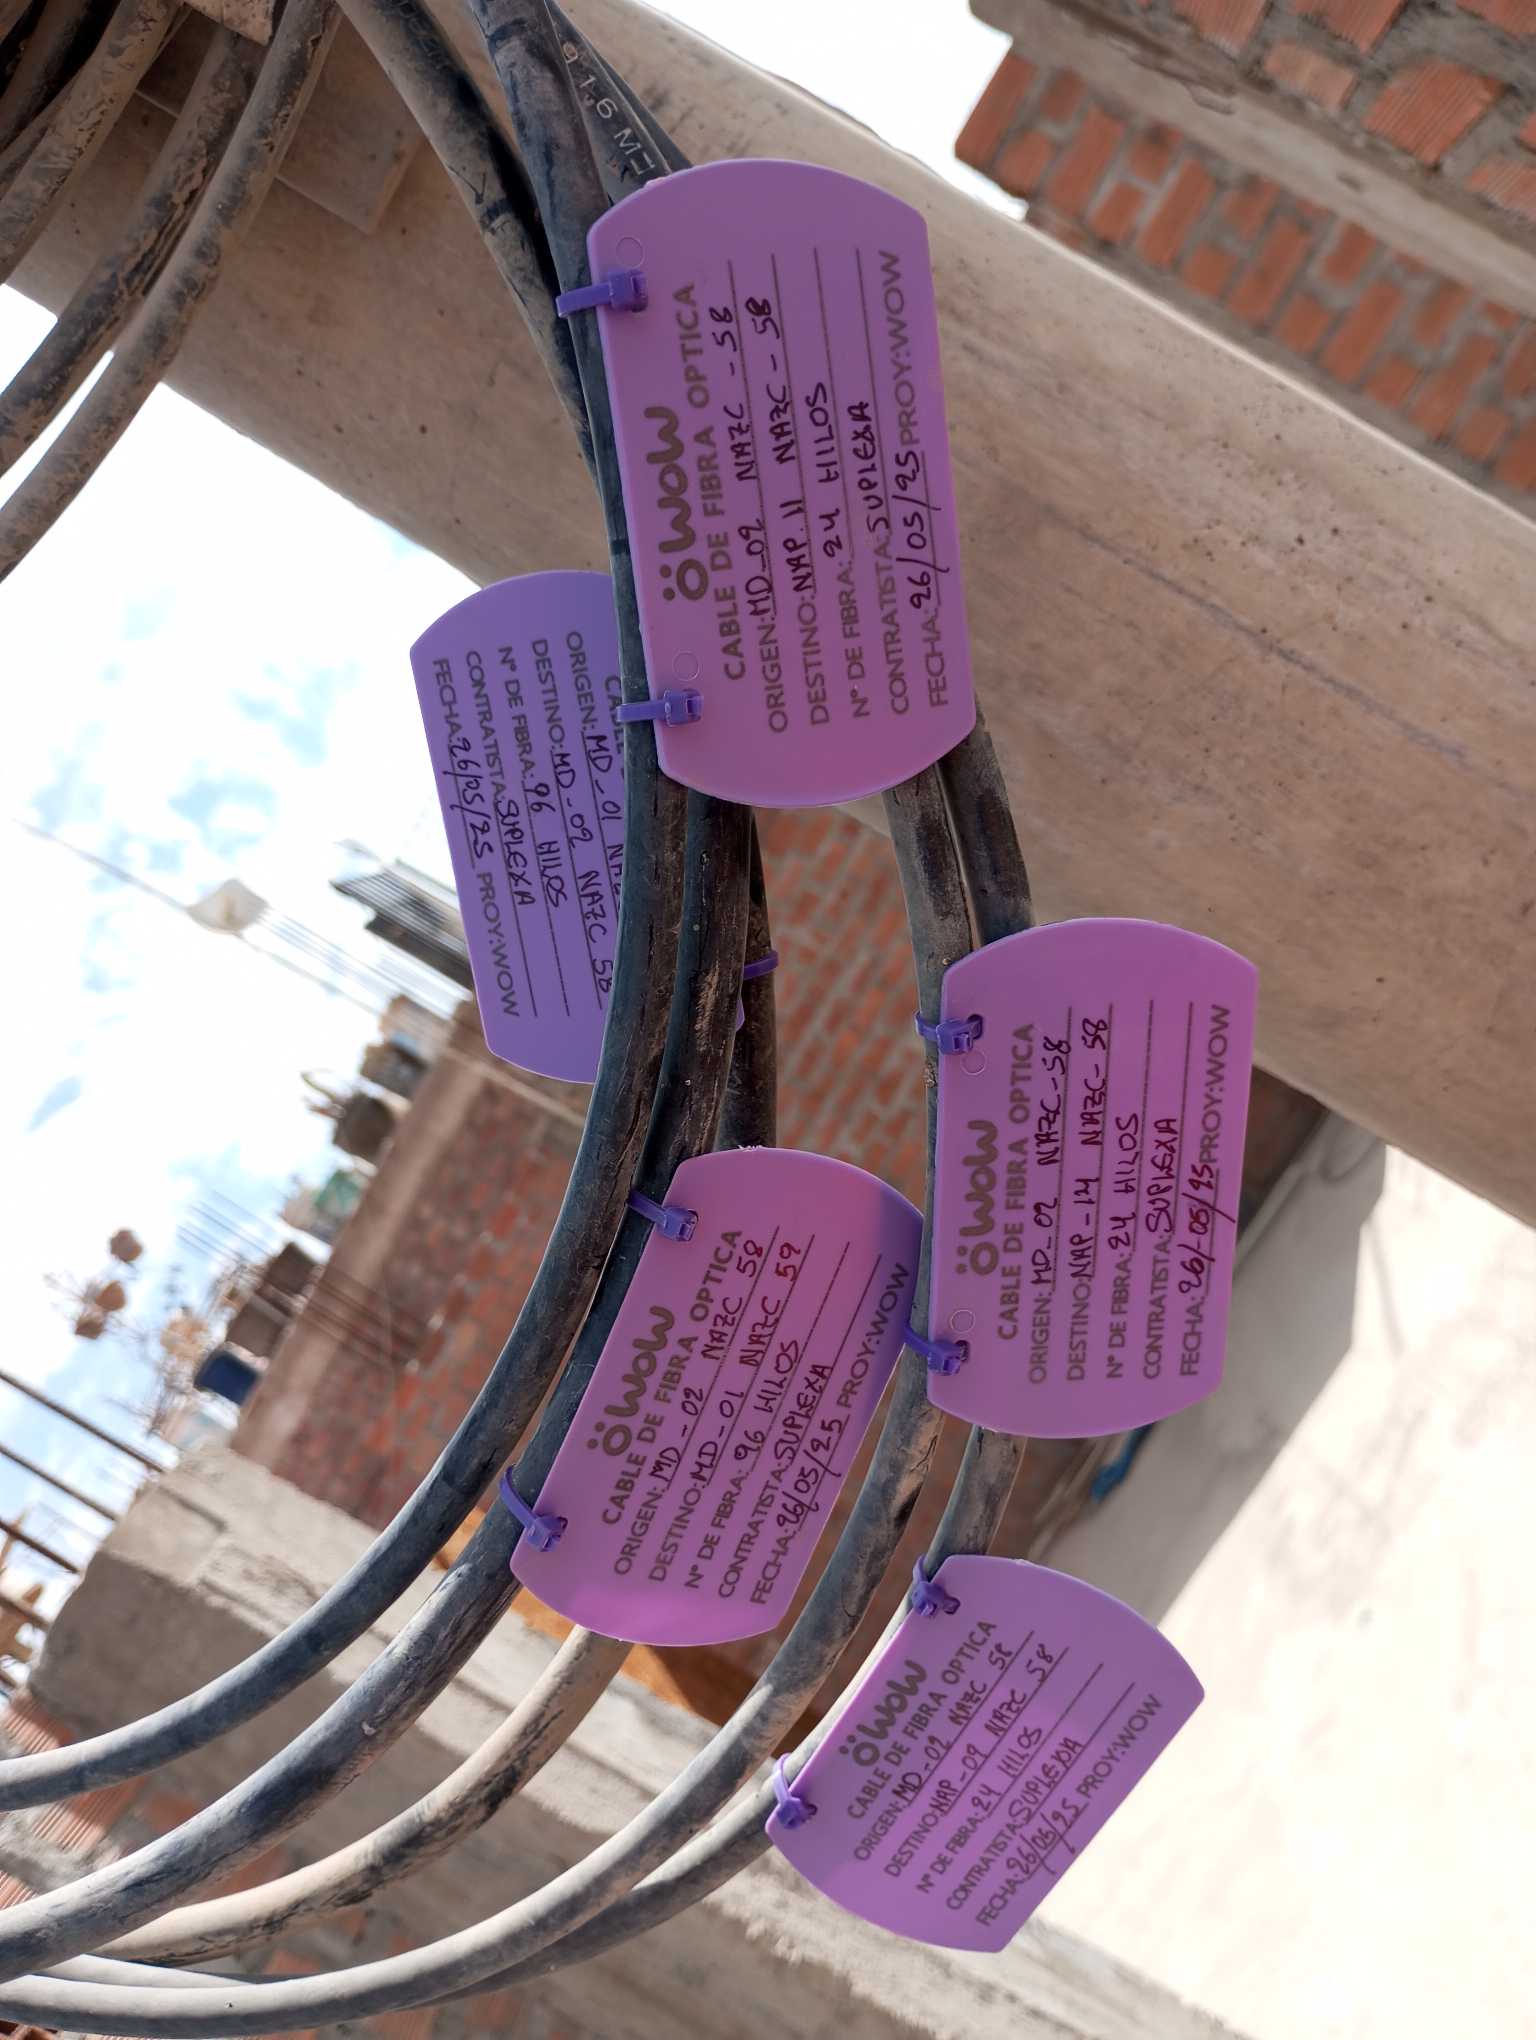 91.6 M
ÖWOW
CABLE DE FIBRA OPTICA
ORIGEN: MD_02 NAZC - 58
DESTINO: NAP. 11 NAZC - 58
N° DE FIBRA: 24 HILOS
CONTRATISTA: SUPLEXA
FECHA: 26/05/25 PROY: WOW
ORIGEN: MD_01
DESTINO: MD_02 NAZC 58
N° DE FIBRA: 96 HILOS
CONTRATISTA: SUPLEXA
FECHA: 26/05/25 PROY: WOW
ÖWOW
CABLE DE FIBRA OPTICA
ORIGEN: MD_02 NAZC-58
DESTINO: NAP-14 NAZC-58
N° DE FIBRA: 24 HILOS
CONTRATISTA: SUPLEXA
FECHA: 26/05/25 PROY: WOW
ÖWOW
CABLE DE FIBRA OPTICA
ORIGEN: MD_02 NAZC 58
DESTINO: MD_01 NAZC 59
N° DE FIBRA: 96 HILOS
CONTRATISTA: SUPLEXA
FECHA: 26/05/25 PROY: WOW
ÖWOW
CABLE DE FIBRA OPTICA
ORIGEN: MD_02 NAZC 58
DESTINO: NAP_09 NAZC 58
N° DE FIBRA: 24 HILOS
CONTRATISTA: SUPLEXA
FECHA: 26/05/25 PROY: WOW